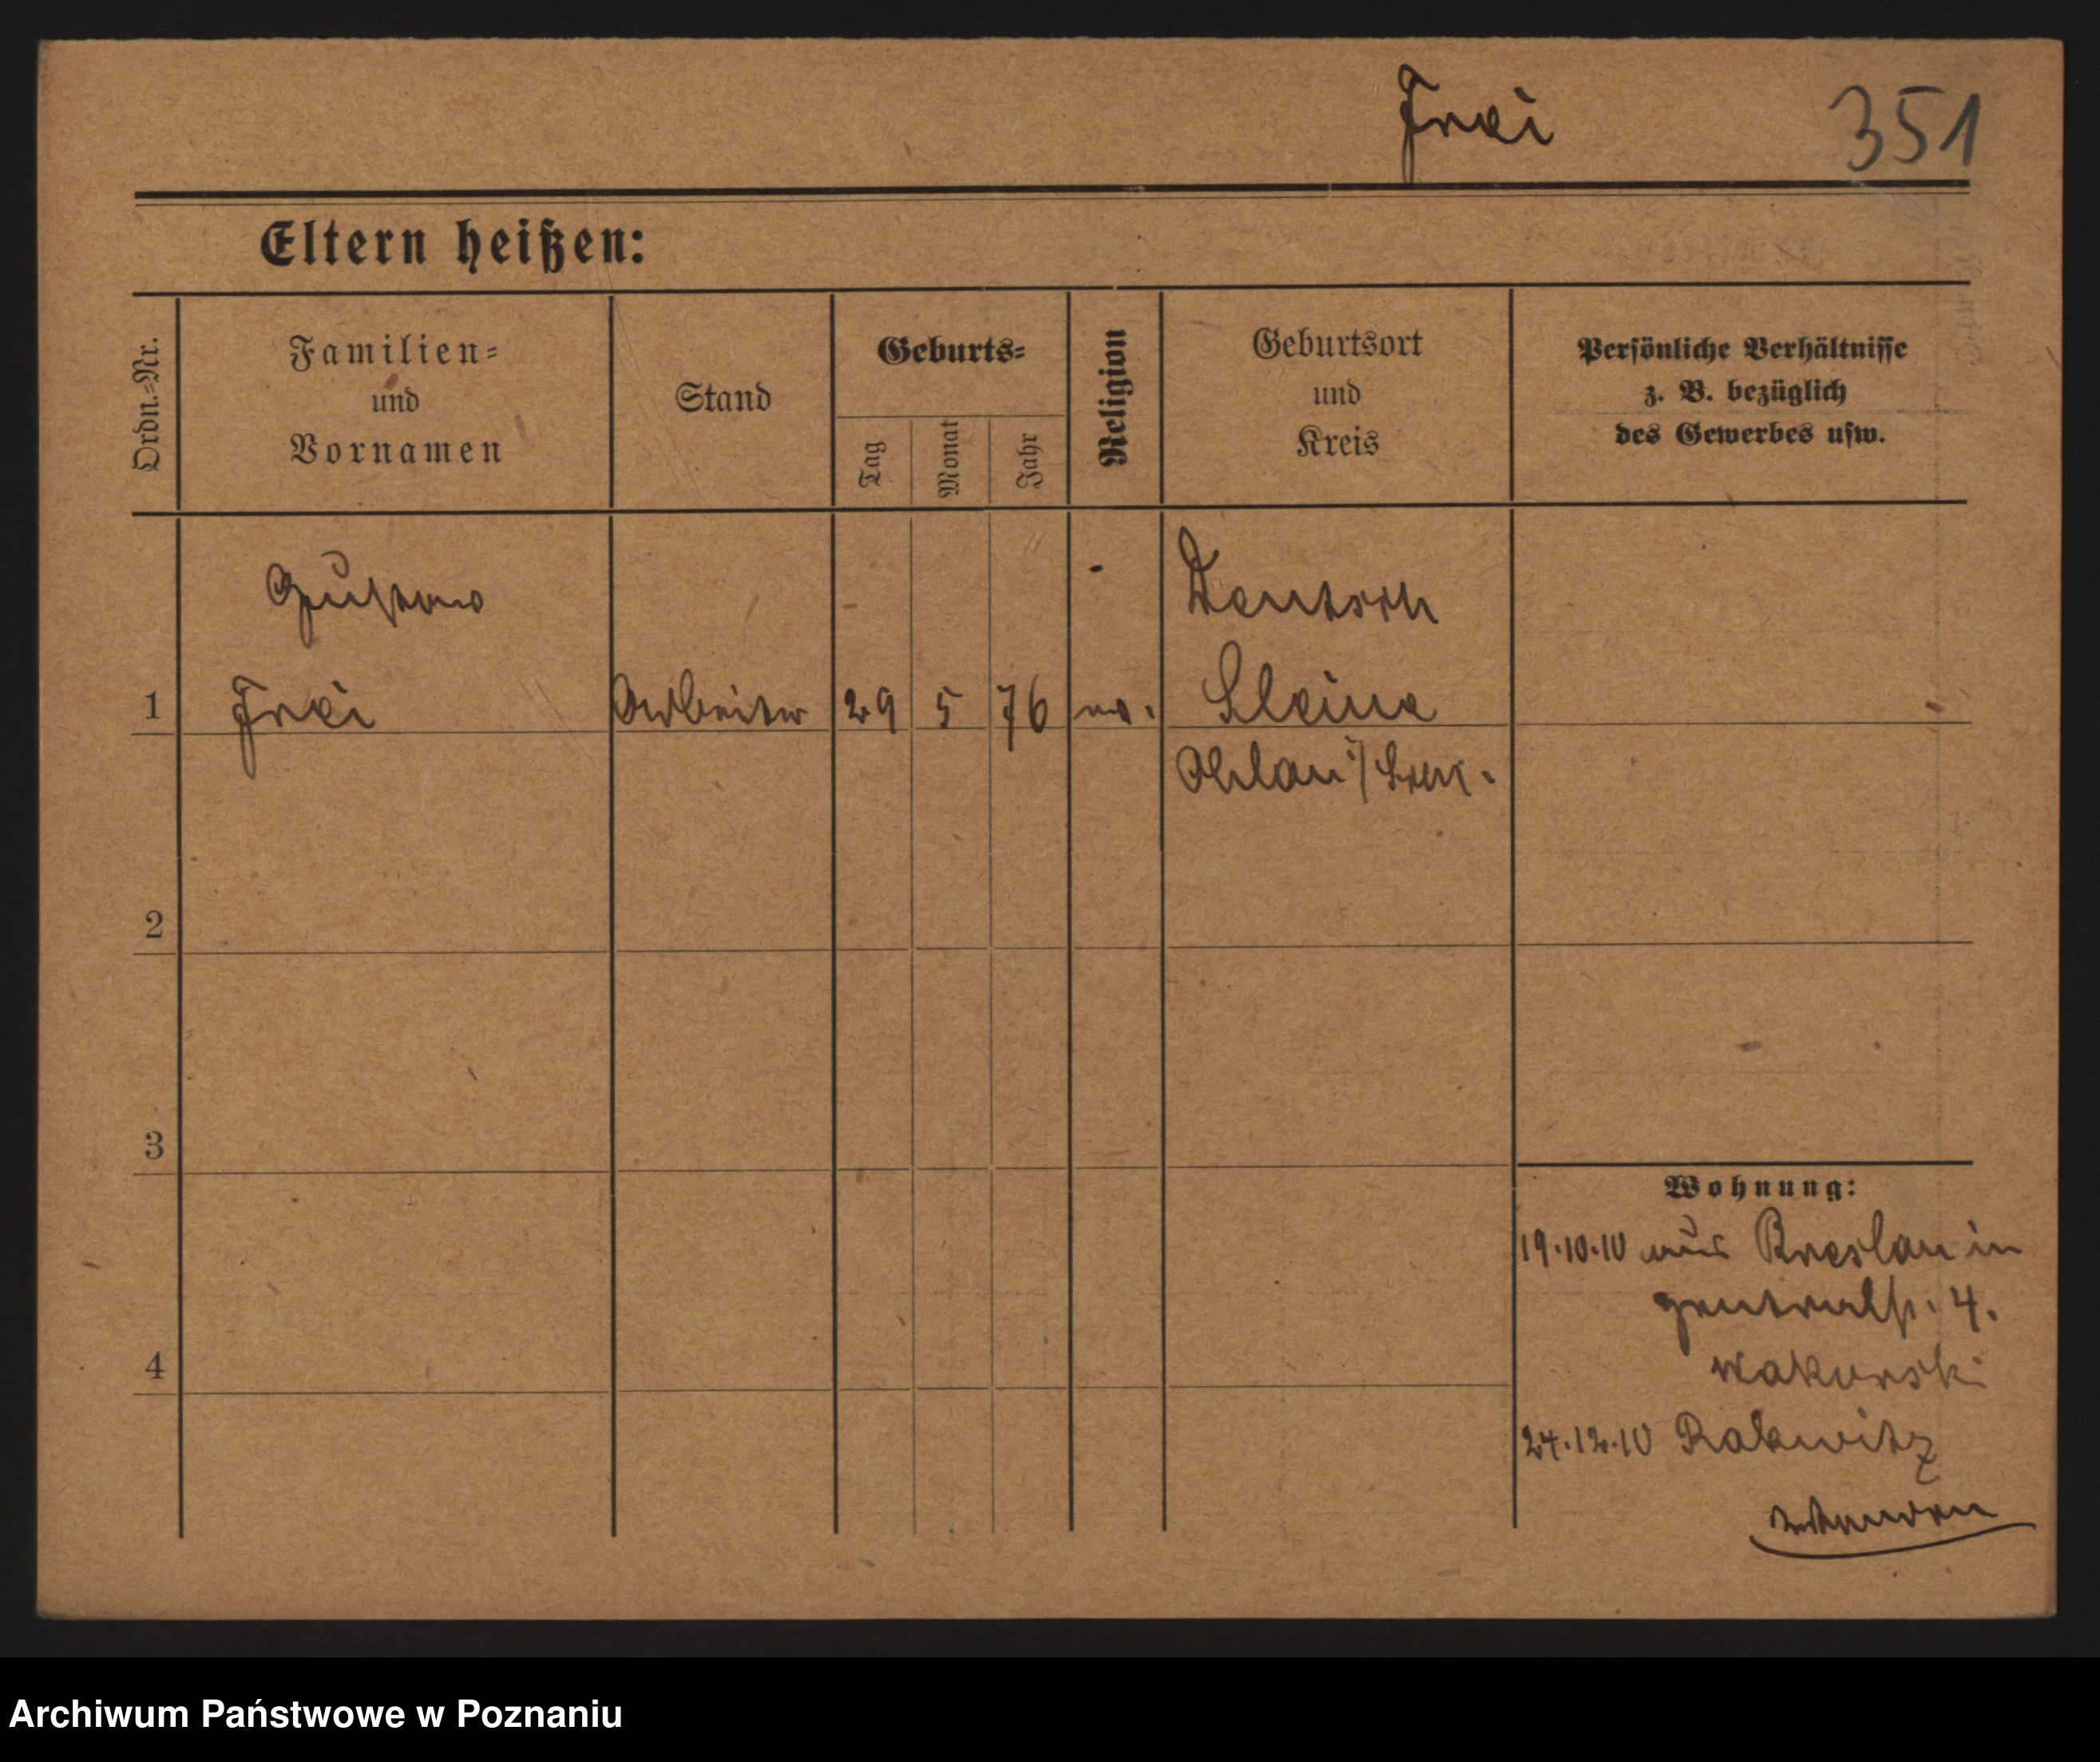 Frei 351
Eltern heißen:
Ordn.-Nr.
Familien-
und
Vornamen
Stand
Geburts-
Tag
Monat
Jahr
Religion
Geburtsort
und
Kreis
Persönliche Verhältnisse
z. B. bezüglich
des Gewerbes usw.
Gustav Deutsch
1 Frei Arbeiter 29 5 76 ev.
Ohlau
2
3
4
Wohnung:
19.10.10 aus Breslau in
4.
24.12.10 Rakwitz
Archiwum Państwowe w Poznaniu